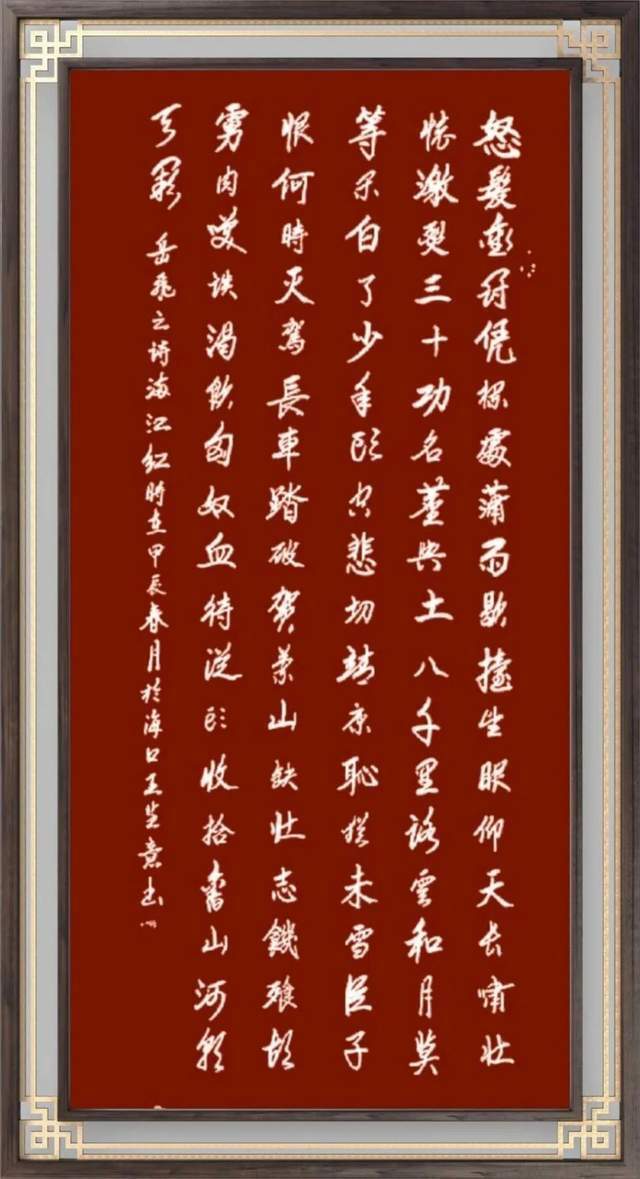 怒髮衝冠凭栏處潇雨歇擡望眼仰天长啸壮
怀激烈三十功名塵與土八千里路雲和月莫
等闲白了少年头空悲切靖康恥猶未雪臣子
恨何時灭駕長車踏破賀兰山缺壮志饑餐胡
虏肉笑谈渴飲匈奴血待從头收拾舊山河朝
天阙 岳飛之诗满江红時在甲辰春月於海口王生意书